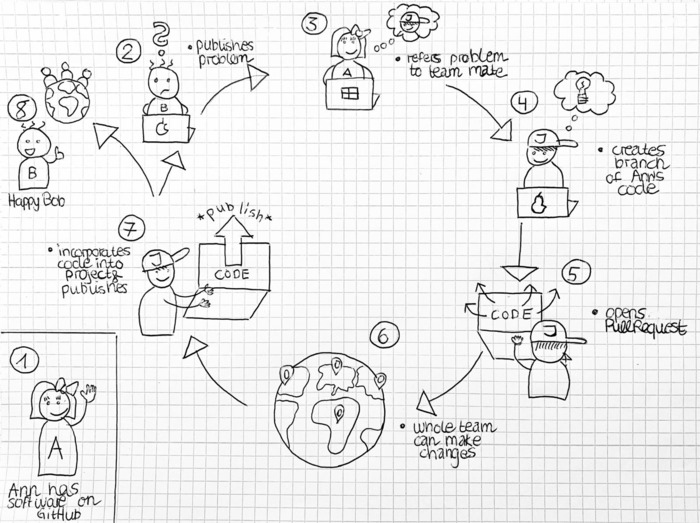 1
A
Ann has
software on
GitHub
2
?
B
• publishes
problem
3
A
• refers problem
to team mate
4
J
• creates
branch
of Ann's
code
5
CODE
J
• opens
Pull Request
6
• whole team
can make
changes
7
• incorporates
code into
project &
publishes
J
*publish*
CODE
8
B
Happy Bob